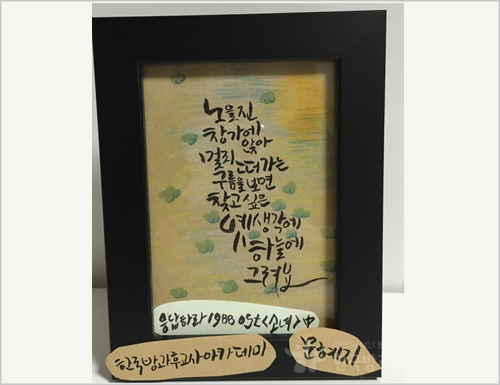 노을진
창가에
앉아
멀리 떠가는
구름을 보면
찾고 싶은
옛 생각에
하늘에
그려요
응답하라 1988 OST <소녀> 中
한국방과후교사아카데미
문혜진